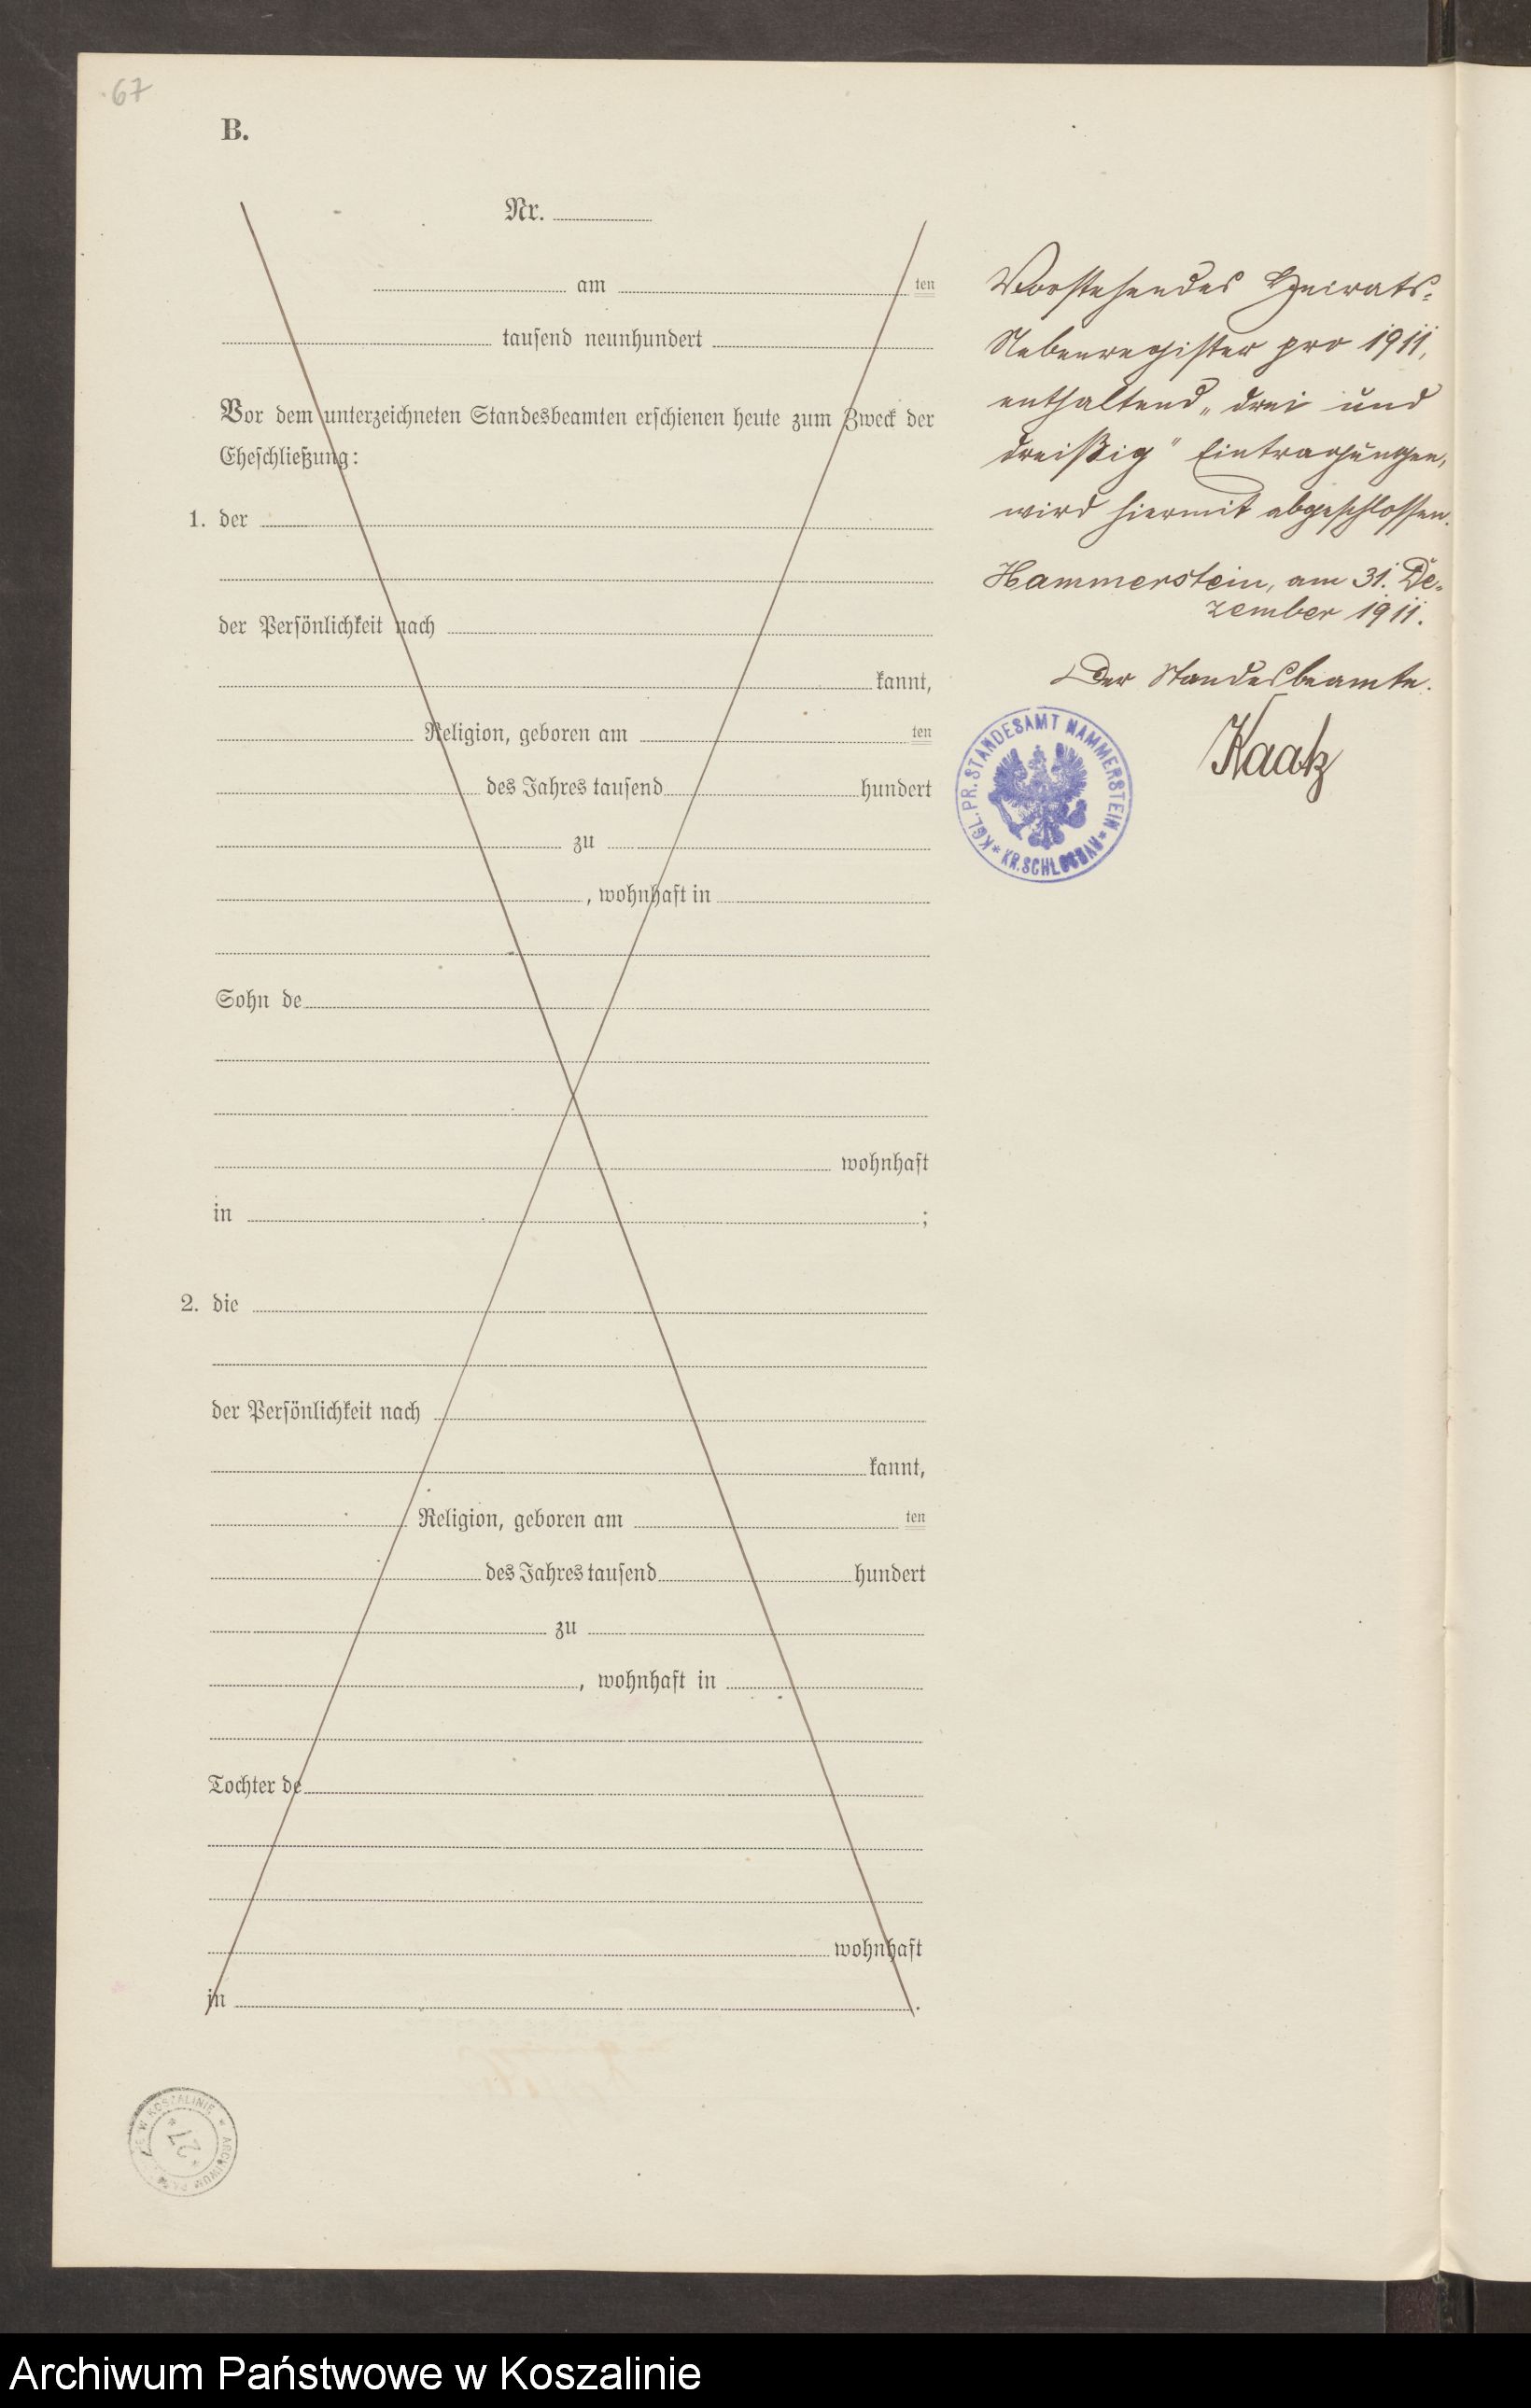 67
B.
Nr.
am ten
tausend neunhundert
Vor dem unterzeichneten Standesbeamten erschienen heute zum Zweck der
Eheschließung:
1. der
der Persönlichkeit nach
kannt,
Religion, geboren am ten
des Jahres tausend hundert
zu
, wohnhaft in
Sohn de
wohnhaft
in ;
2. die
der Persönlichkeit nach
kannt,
Religion, geboren am ten
des Jahres tausend hundert
zu
, wohnhaft in
Tochter de
wohnhaft
in .
Vorstehendes Heirats-
Nebenregister pro 1911,
enthaltend „drei und
dreißig" Eintragungen,
wird hiermit abgeschlossen.
Hammerstein, am 31. De-
zember 1911.
Der Standesbeamte.
Kaatz
KGL. PR. STANDESAMT HAMMERSTEIN * KR. SCHLOCHAU *
ARCHIWUM W KOSZALINIE
* 27 *
Archiwum Państwowe w Koszalinie